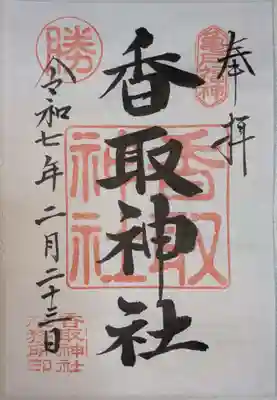 奉拝
亀戸香取神社
香取神社
香取神社
勝
令和七年二月二十三日
香取神社
社務所印